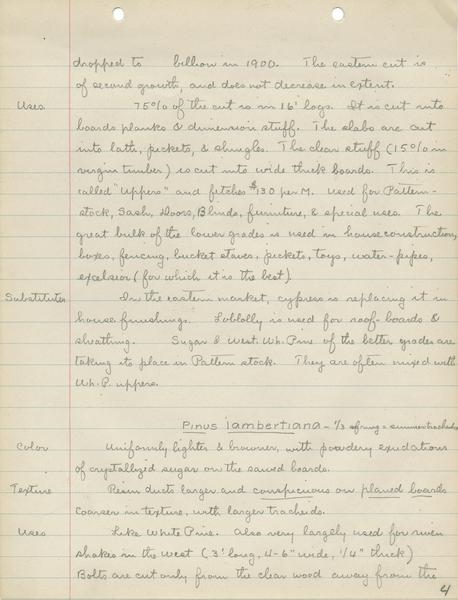 dropped to billion in 1900. The eastern cut is
of second growth, and does not decrease in extent.
Uses. 75% of the cut is in 16' logs. It is cut into
boards planks & dimension stuff. The slabs are cut
into lath, pickets, & shingles. The clear stuff (15% in
virgin timber) is cut into wide thick boards. This is
called "uppers" and fetches $30 per M. used for Pattern-
stock, Sash, Doors, Blinds, furniture, & special uses. The
great bulk of the lower grades is used in house construction,
boxes, fencing, bucket staves, pickets, toys, water-pipes,
excelsior (for which it is the best).
Substitutes In the eastern market, cypress is replacing it in
house finishings. Loblolly is used for roof-boards &
sheathing. Sugar & West. Wh. Pine of the better grades are
taking its place in Pattern stock. They are often mixed with
Wh. P. uppers.
Pinus lambertiana - 1/3 spring = summer tracheids
Color Uniformly lighter & browner, with powdery exudations
of crystallized sugar on the sawed boards.
Texture Resin ducts larger and conspicuous on planed boards
coarser in texture, with larger tracheids.
Uses Like White Pine. Also very largely used for riven
shakes in the west (3' long, 4-6" wide, 1/4" thick)
Bolts are cut only from the clear wood away from the
4